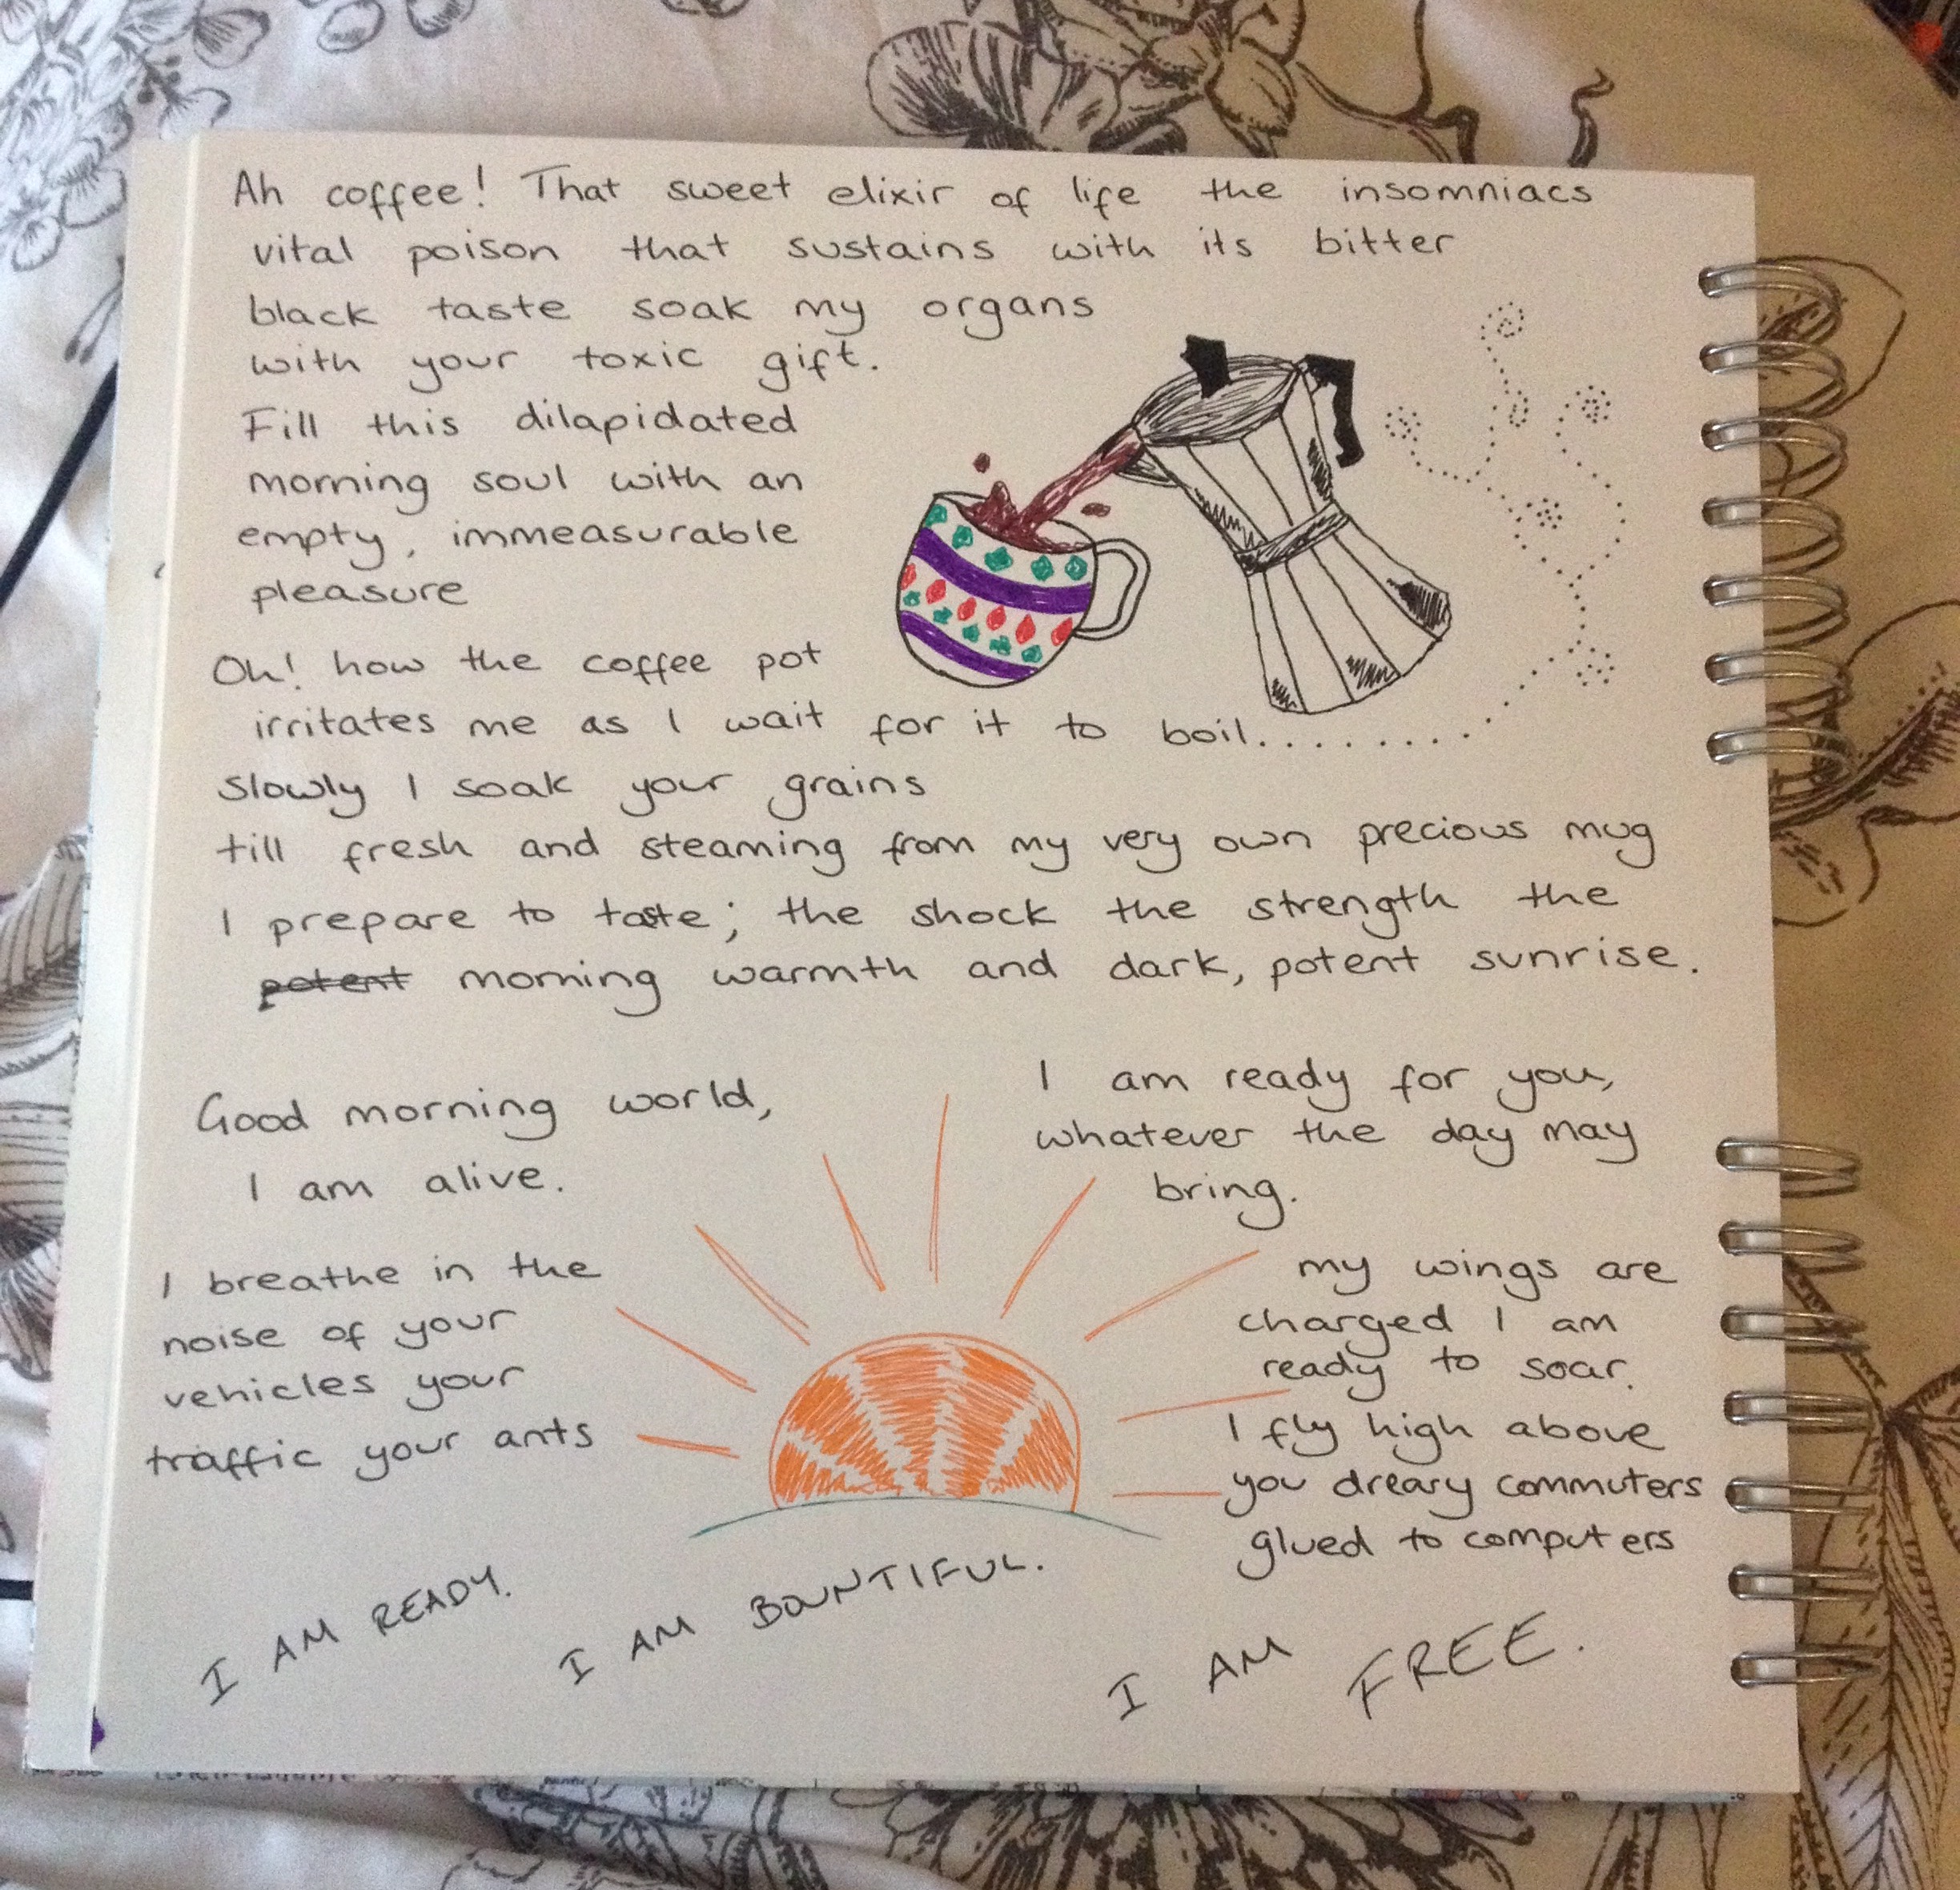 Ah coffee! That sweet elixir of life the insomniacs
vital poison that sustains with its bitter
black taste soak my organs
with your toxic gift.
Fill this dilapidated
morning soul with an
empty, immeasurable
pleasure
Oh! how the coffee pot
irritates me as I wait for it to boil.........
slowly I soak your grains
till fresh and steaming from my very own precious mug
I prepare to taste; the shock the strength the
potent morning warmth and dark, potent sunrise.
Good morning world,
I am alive.
I breathe in the
noise of your
vehicles your
traffic your ants
I am ready for you,
whatever the day may
bring.
my wings are
charged I am
ready to soar.
I fly high above
you dreary commuters
glued to computers
I AM READY.
I AM BOUNTIFUL.
I AM FREE.